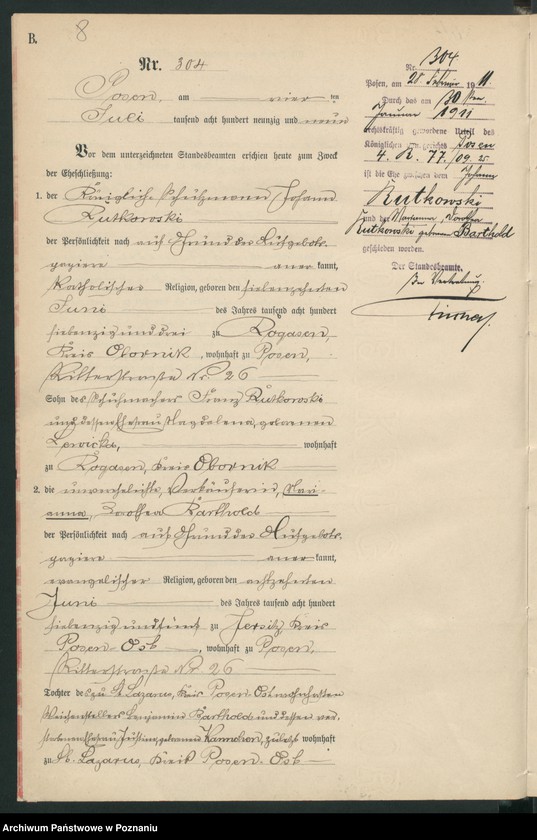 B.
8
Nr. 304
Posen, am vier ten
Juli tausend acht hundert neunzig und neun
Vor dem unterzeichneten Standesbeamten erschien heute zum Zweck
der Eheschließung:
1. der Königliche Schutzmann Johann
Rutkowski
der Persönlichkeit nach auf Grund des Aufgebots-
papiere aner kannt,
katholischer Religion, geboren den siebenzehnten
Juni des Jahres tausend acht hundert
siebenzig und drei zu Rogasen,
Kreis Obornik, wohnhaft zu Posen,
Ritterstrasse Nr. 26
Sohn des Schuhmachers Franz Rutkowski
und dessen Ehefrau Magdalena, geborenen
wohnhaft
zu Rogasen, Kreis Obornik
2. die unverehelichte, Verkäuferin, Mari-
anna, Dorothea Barthold
der Persönlichkeit nach auf Grund des Aufgebots-
papiere aner kannt,
evangelischer Religion, geboren den achtzehnten
Juni des Jahres tausend acht hundert
siebenzig und fünf zu Jersitz, Kreis
Posen-Ost, wohnhaft zu Posen,
Ritterstrasse Nr. 26
Tochter des zu St. Lazarus, Kreis Posen-Ost wohnhaften
Weichenstellers Benjamin Barthold und dessen ver-
storbenen Ehefrau Justine, geborenen zuletzt wohnhaft
zu St. Lazarus, Kreis Posen-Ost
Nr. 304
Posen, am 28 Februar 1911
Durch das am 30ten
Januar 1911
rechtskräftig gewordene Urteil des
Königlichen Landgerichts Posen
4. R. 77./09.
ist die Ehe zwischen dem Johann
Rutkowski
und der Marianna, Dorothea
Rutkowski geborenen Barthold
geschieden worden.
Der Standesbeamte.
In Vertretung.
Archiwum Państwowe w Poznaniu